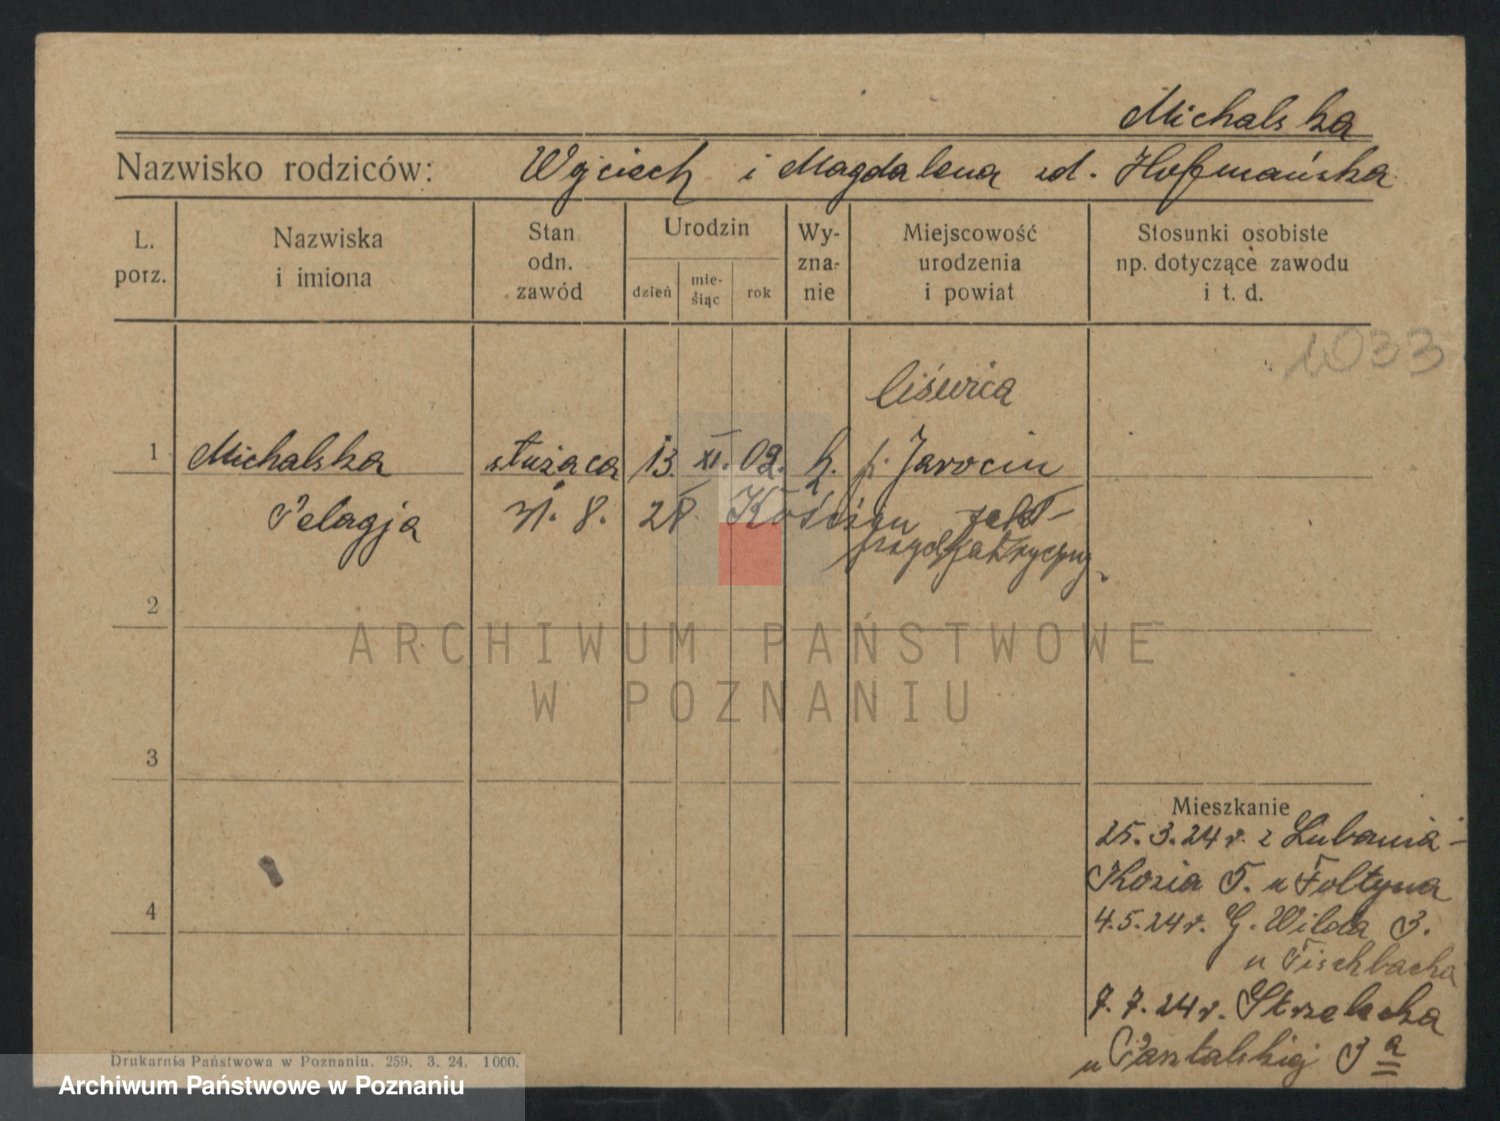 Michalska
Nazwisko rodziców: Wojciech i Magdalena zd. Hofmańska
L. porz.
Nazwiska i imiona
Stan odn. zawód
Urodzin
dzień
mie-siąc
rok
Wy-zna-nie
Miejscowość urodzenia i powiat
Stosunki osobiste np. dotyczące zawodu i t. d.
1033
liświca
1 Michalska służąca 13. XI. 02. k. p. Jarocin
Pelagja 31. 8. 28 Kościan
2
ARCHIWUM PAŃSTWOWE
W POZNANIU
3
Mieszkanie
25.3.24 r. z Lubonia-
Kozia 5. u Foltyna
4
4.5.24 r. G. Wilda 3.
u Fischbacha
7.7.24 r. Strzelecka
u 3 a
Drukarnia Państwowa w Poznaniu. 259. 3. 24. 1000.
Archiwum Państwowe w Poznaniu